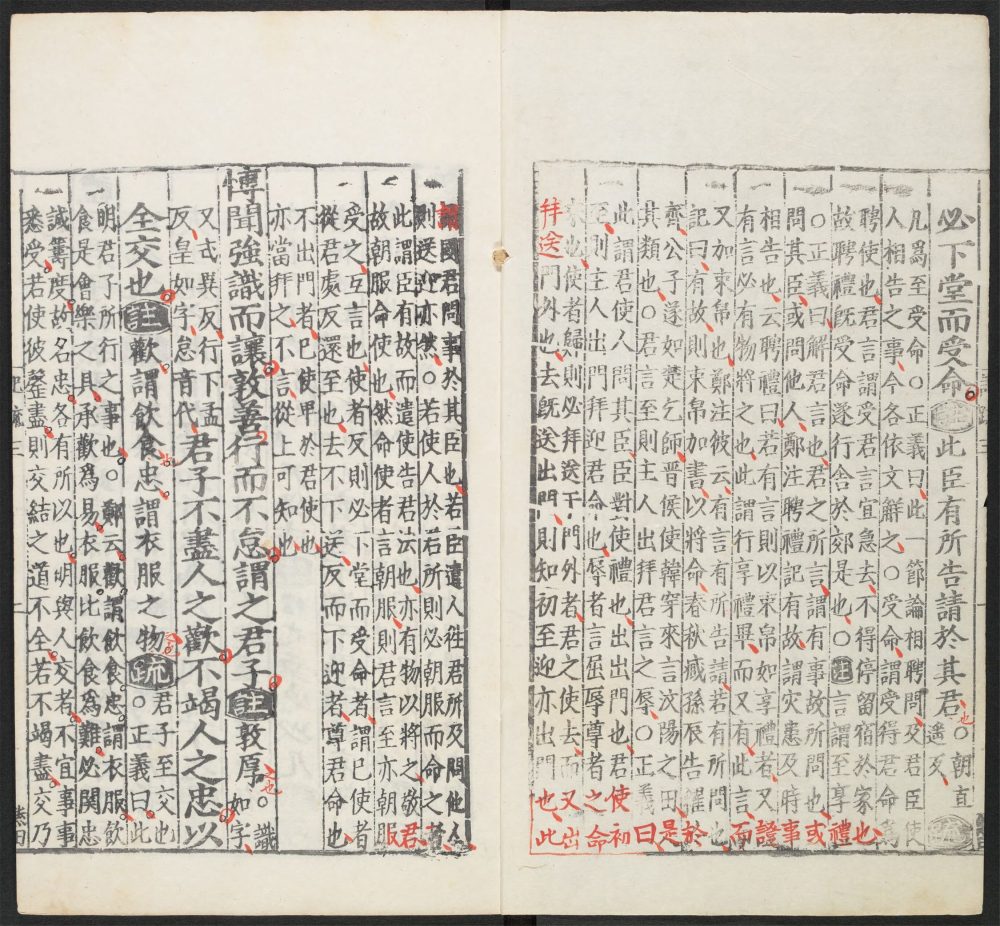 必下堂而受命註此臣有所告請於其君也○朝直遥反疏
凡爲至受命○正義曰此一節論相聘問及君臣使
人相告之事今各依文解之○君命謂受得君命爲
聘使也君言謂受君言宜急去不得停留宿於家
故聘禮旣受命遂行舍於郊是也○註言謂至享禮也
○正義曰解君言也君之所言謂有事故所問也或
問其臣或問他人鄭注聘禮記有故謂灾患及時事
相告也云聘禮曰若有言則以束帛如享禮者又證
有言必有物將之也此謂行享禮畢而又有此言而
又加束帛也鄭注彼云有言有所告請若有所問也
記曰有故則束帛加書以將命春秋臧孫辰告糴於
齊公子遂如楚乞師晉侯使韓穿來言汶陽之田是
其類也○君言至則主人出拜君言之辱○正義曰
此謂君使人問其臣臣對使禮也出出門也君使初
至則主人出門拜迎君命也辱者言屈辱尊者之命
來也使者歸則必拜送于門外者君之使去而又出
拜送門外也去旣送出門則知初至迎亦出門也此
謂國君問事於其臣也若臣遣人往君所及問他人
則送迎亦然○若使人於君所則必朝服而命之者
此謂臣有故而遣使告君法也亦有物以將之敬君
故朝服命使也然命使者言朝服則君言至亦朝服
受之互言也使者反則必下堂而受命者謂已使者
從君處反還至也去不下送反而下迎者尊君命也
不出門者已使卑於君使也
亦當拜之不言從上可知也
博聞強識而讓敦善行而不怠謂之君子註敦厚之也。識如字
又式異反行下孟反皇如字怠音代君子不盡人之歡不竭人之忠以
全交也註歡謂飲食忠謂衣服之物疏君子至交也○正義曰此
明君子所行之事也○鄭云歡謂飲食忠謂衣服飲
食是會樂之具承歡爲易衣服比飲食爲難必関忠
誠籌度故名忠各有所以也明與人交者不宜事事
悉受若使彼罄盡則交結之道不全若不竭盡交乃